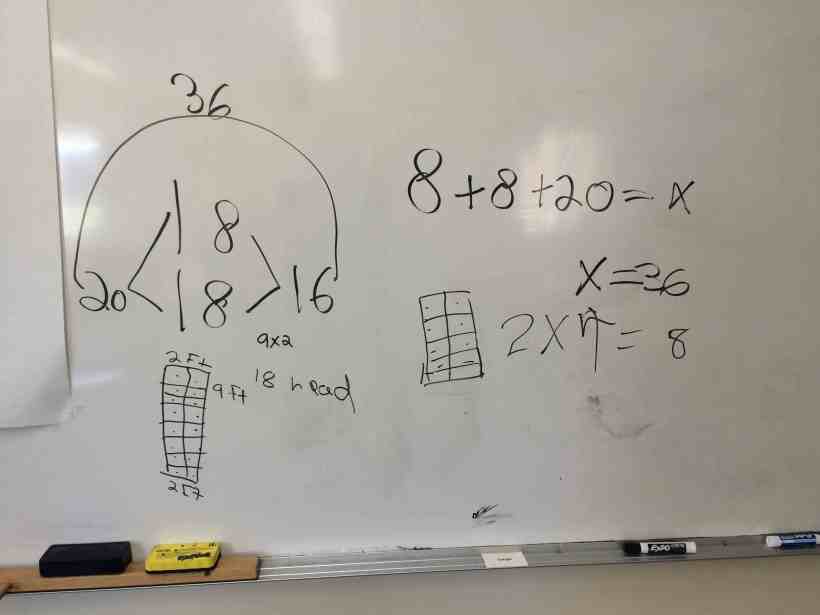 36
18
20 18 16
9x2
2 Ft
9 Ft 18 head
2 Ft
8+8+20=x
x=36
2x4=8
EXPO